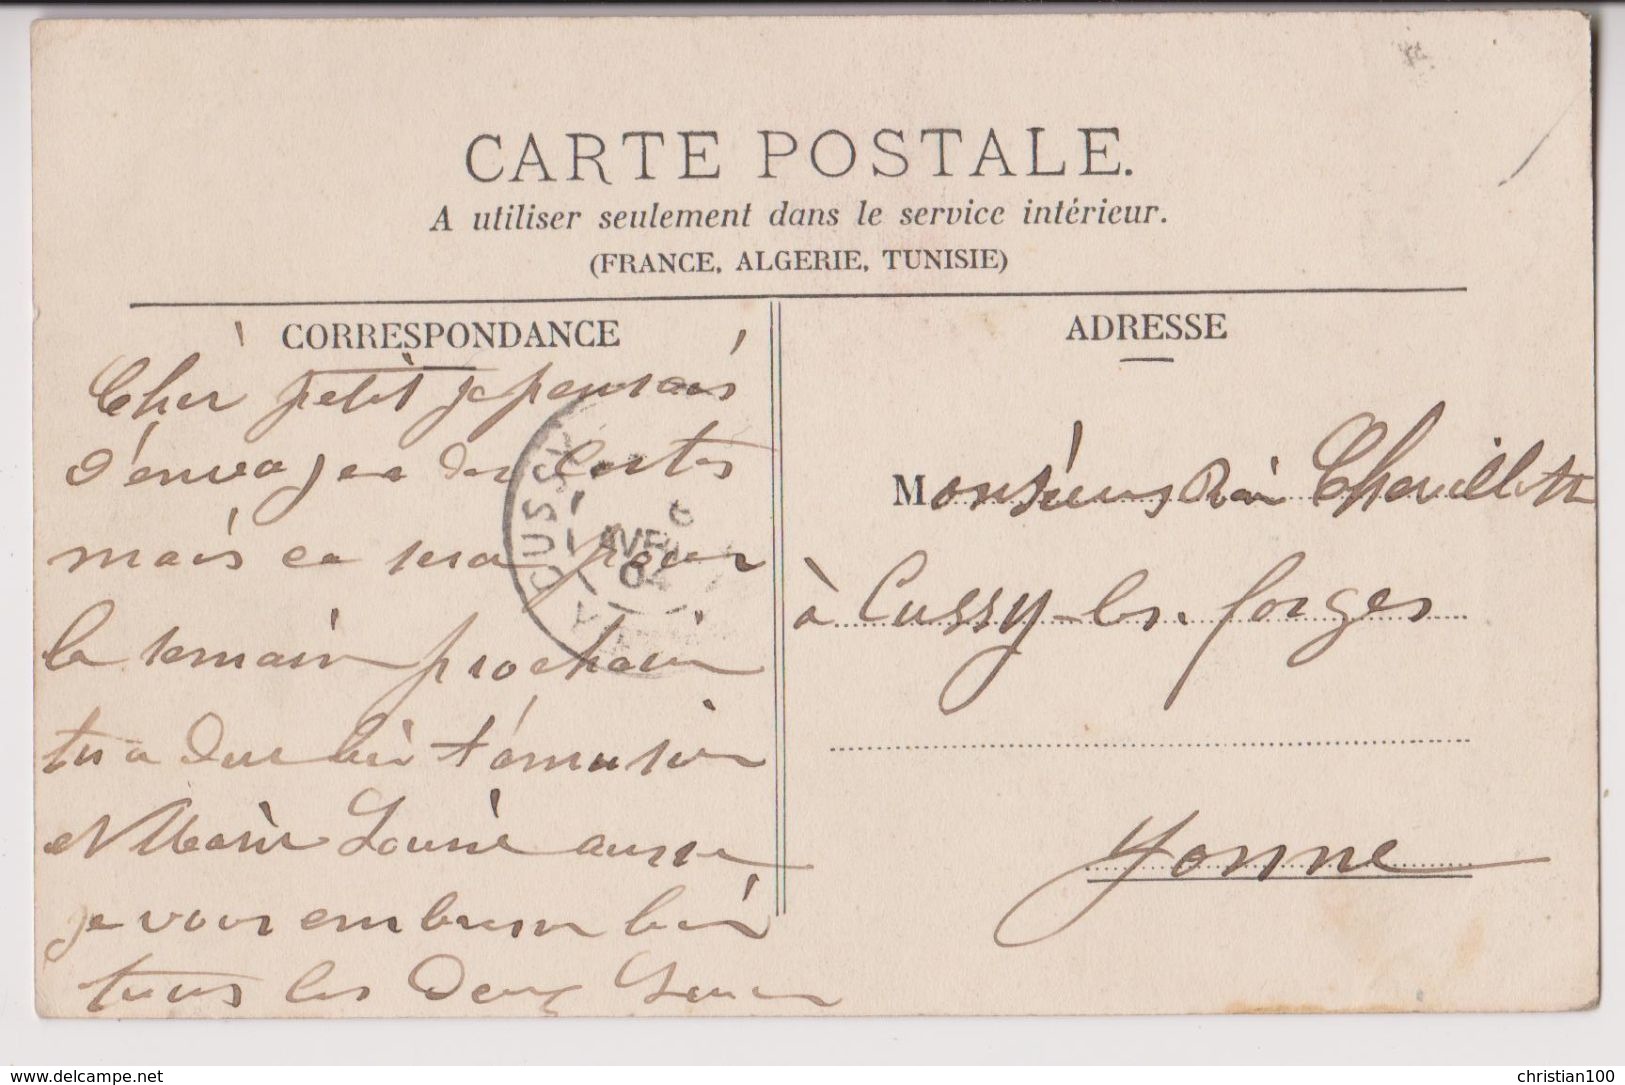 CARTE POSTALE.
A utiliser seulement dans le service intérieur.
(FRANCE, ALGERIE, TUNISIE)
CORRESPONDANCE
ADRESSE
Cher petit je pensais
d'envoyer des Cartes
mais ce sera pour
la semain prochain
tu a due bien t'émuser
et Marie Louise aussi
je vous embrasse bien
tous les deux
Monsieur Chevillotte
à Cussy-les-forges
Yonne
CUSSY
www.delcampe.net
christian100